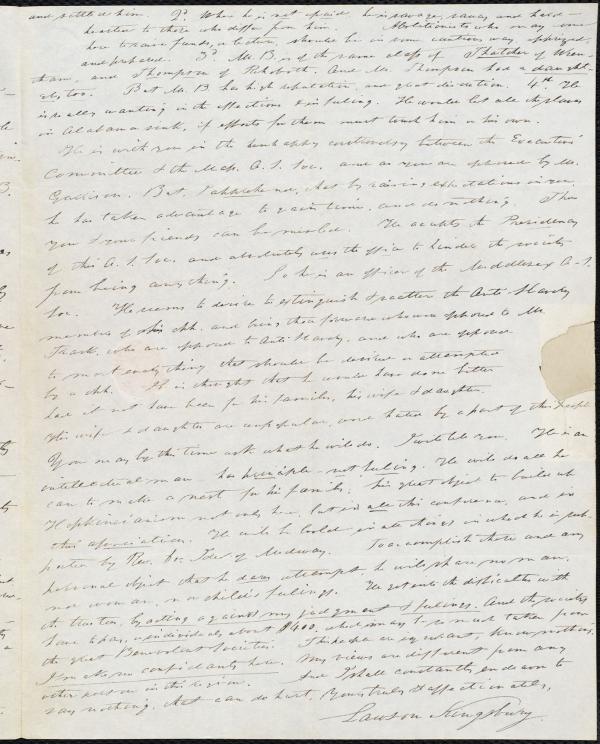 and settled him. 2d. When he is not afraid, he is savage, saucy and hard-
hearted to those who differ from him. Abolitionists who on any one
here to raise funds, or lecture, should be in some cautious way, apprized,
and prepared. 3d. Mr. B. is of the same class of Thatcher of Wren-
tham, and Thompson of Rehoboth. And Mr. Thompson had a daught-
er too. But Mr. B has high reputation, and great discretion. 4th. He
is really wanting in the affections & in feeling. He would let all the slaves
in Alabama sink, if efforts for them must touch him or his own.
He is with you in the unhappy controversy between the Executive
Committee & the Mass. A. S. Soc. and as you are opposed by Mr.
Garrison. But, I apprehend, that by raising expectations in you
he has taken advantage to gain time, and do nothing. Thus
you & your friends can be misled. He accepts the Presidency
of this A. S. Soc. and absolutely uses the office to hinder the society
from being anything. So he is an officer of the Middlesex A. S.
Soc. He seems to desire to extinguish & scatter the Anti-Slavery
members of this chh. and bring those forward who were opposed to Mr.
who are opposed to Anti Slavery, and who are opposed
to most every thing that should be desired or attempted
by a chh. It is thought that he would have done better
had it not have been for his families, his wife & daughter.
His wife & daughter are unpopular, and hated by a part of the people
You may by this time ask what he will do. I will tell you. He is an
intellectual man - has principle - not feeling. He will do all he
can to make a nest for his family; his great object to build up
Hopkinsianism not only here, but in all this conference, and in
this association. He will be bold in all things in which he is sup-
ported by Rev. Dr. Ide of Medway. To accomplish these and any
personal object that he dares attempt, he will spare no man,
nor woman, nor child's feelings. He got out the difficulties with
the trustees, by acting against my judgment & feelings. And the society
have to pay, as individuals about $400, which may be so much taken from
the great Benevolent Societies. The people are ignorant, know nothing.
I make no confidants here. My views are different from any
other person in this region. And I shall constantly endeavor to
say nothing, that can do hurt, Yours truly & affectionately,
Lawson Kingsbury.